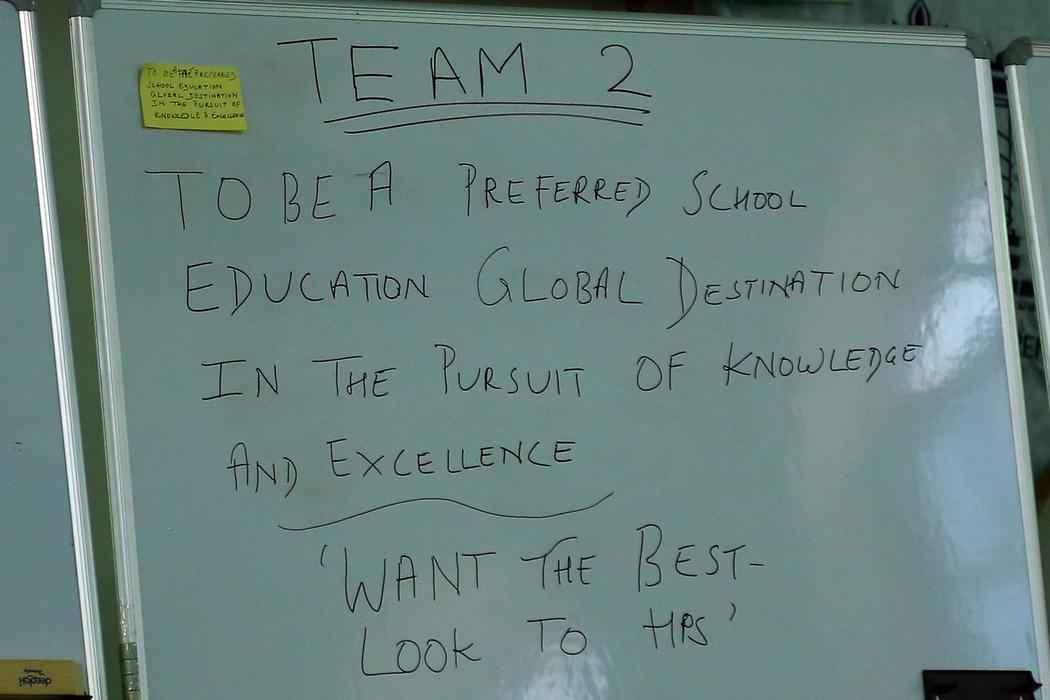 TEAM 2
TO BE THE PREFERRED
SCHOOL EDUCATION
GLOBAL DESTINATION
IN THE PURSUIT OF
KNOWLEDGE & EXCELLENCE
TO BE A PREFERRED SCHOOL
EDUCATION GLOBAL DESTINATION
IN THE PURSUIT OF KNOWLEDGE
AND EXCELLENCE
'WANT THE BEST-
LOOK TO HPS'